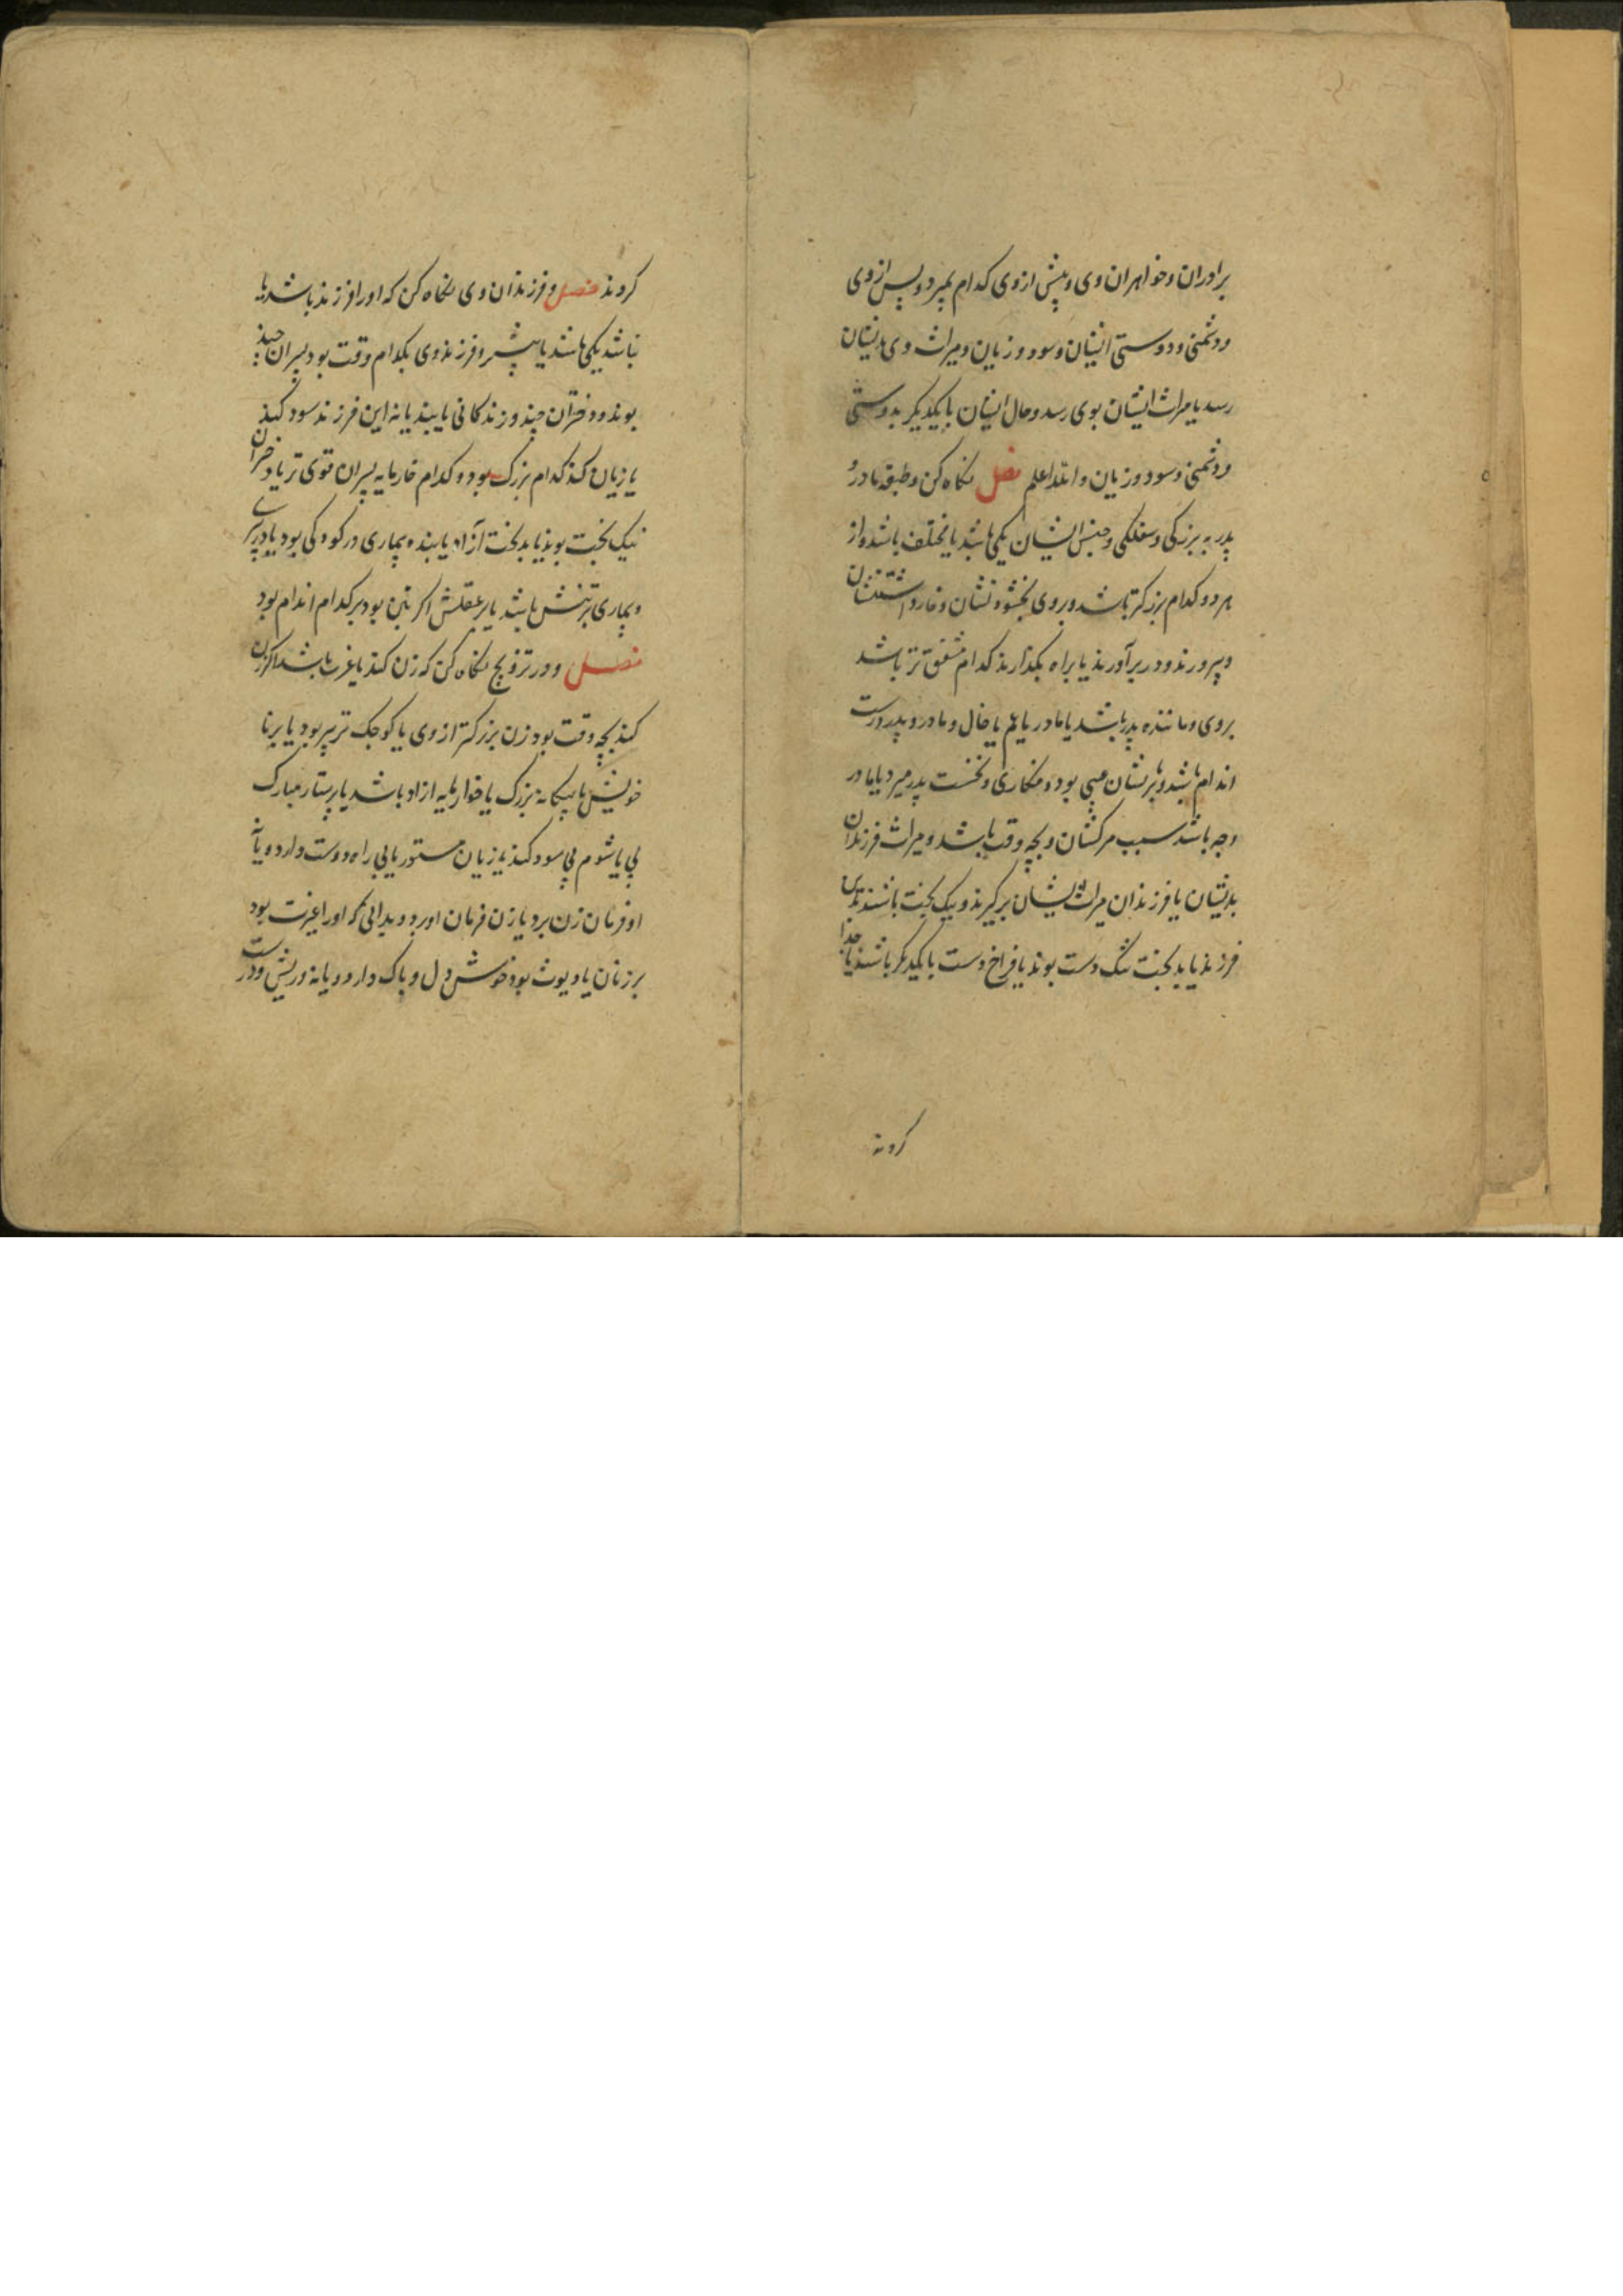 برادران و خواهران وی و پیش از وی کدام بمیرد و پس از وی
و دشمنی و دوستی ایشان و سود و زیان و میراث وی بدیشان
رسد یا میراث ایشان بوی رسد و حال ایشان با یکدیگر بدوستی
و دشمنی و سود و زیان و الله اعلم فصل نکاه کن و طبقه مادر و
پدر به بزرکی و سفلکی و جنس ایشان یکی باشد یا مختلف باشد و از
هر دو کدام بزرکتر باشد و بر وی بخشودنشان و خار داشتنشان
و بپرورند و در بر آورند یا براه بگذارند کدام مشفق تر باشد
بر وی و ماننده پدر باشد یا مادر یا عم یا خال و مادر و پدر درست
اندام باشند و بر نشان عیبی بود و منکاری و نخست پدر میرد یا مادر
وجه باشد سبب مرکشان و بچه وقت باشد و میراث فرزندان
بدیشان یا فرزندان میراث ایشان برکیرند و نیک بخت باشند بدین
فرزند یا بدبخت تنک دست بوند یا فراخ دست با یکدیکر باشند یا جدا
کردند
کردند فصل و فرزندان وی نکاه کن که او را فرزند باشد یا
نباشد یکی باشد یا بیشتر و فرزند وی بکدام وقت بود پسران چند
بوند و دختران چند و زندکانی یابند یا نه این فرزند سود کند
یا زیان کند کدام بزرک بود و کدام خارمایه پسران قوی تر یا دختران
نیک بخت بوند یا بدبخت آزاد یا بنده بیماری در کودکی بود یا در پیری
و بیماری بر تنش باشد یا بر عقلش اکر بتن بود بر کدام اندام بود
فصل و در تزویج نکاه کن که زن کند یا عزب باشد اکر زن
کند بچه وقت بود زن بزرکتر از وی یا کوچک تر پیر بود یا برنا
خویش یا بیکانه بزرک یا خوارمایه ازاد باشد یا پرستار مبارک
پی یا شوم پی سود کند یا زیان مستور یا بی راه دوست دارد و یا نه
او فرمان زن برد یا زن فرمان او برد و بدانی که او را غیرت بود
بر زنان یا دیوث بود خوش دل و باک دارد و یا نه و ریش و درست